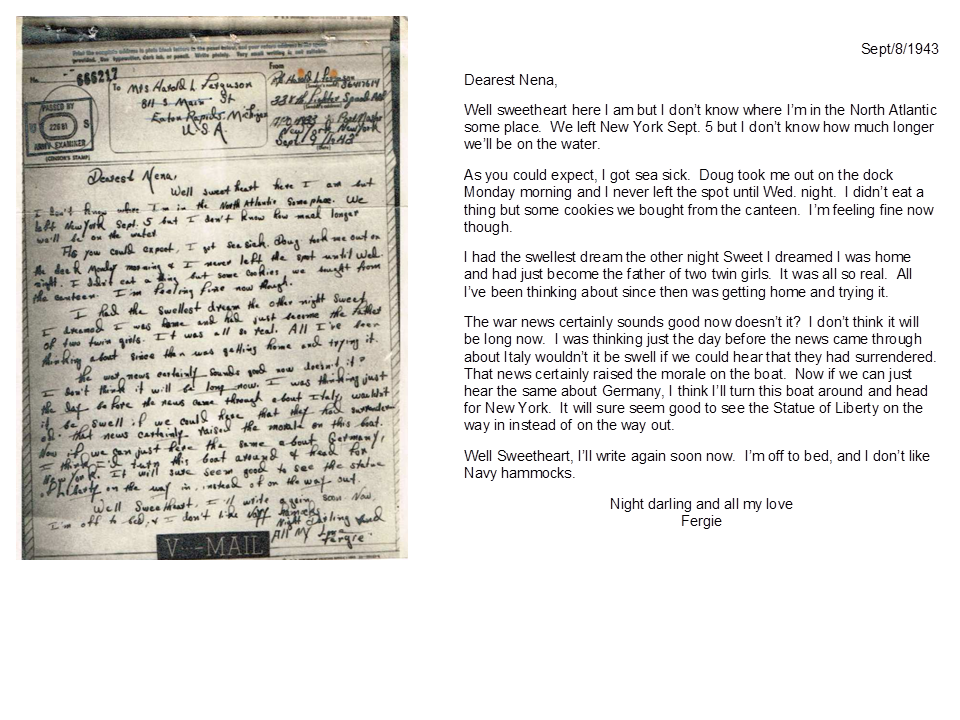 Print the complete address in plain block letters in the panel below, and your return address in the space
provided. Use typewriter, dark ink, or pencil. Write plainly. Very small writing is not suitable.
No.
666217
From
To
Mrs Harold L Ferguson
811 S. Main St
Eaton Rapids, Michigan
U S A
Harold L Ferguson
338th Fighter Squad
New York New York
Sept 9/1943
PASSED BY
U S
22681
ARMY EXAMINER
(CENSOR'S STAMP)
Dearest Nena,
Well sweet heart here I am but
I don't know where I'm in the North Atlantic Some place. We
left New York Sept. 5 but I don't know how much longer
we'll be on the water.
As you could expect, I got sea sick. Doug took me out on
the deck Monday morning & I never left the spot until Wed.
night. I didn't eat a thing but some cookies we bought from
the canteen. I'm feeling fine now though.
I had the swellest dream the other night Sweet
I dreamed I was home and had just become the father
of two twin girls. It was all so real. All I've been
thinking about since then was getting home and trying it.
The war news certainly sounds good now doesn't it?
I don't think it will be long now. I was thinking just
the day before the news came through about Italy wouldn't
it be swell if we could hear that they had surrender
ed. That news certainly raised the morale on this boat.
Now if we can just hear the same about Germany,
I think I'd turn this boat around & head for
New York. It will sure seem good to see the statue
of Liberty on the way in instead of on the way out.
Well Sweetheart, I'll write again soon now.
I'm off to bed, & I don't like
Night Darling and
All My Love
Fergie
V···—MAIL
Sept/8/1943
Dearest Nena,
Well sweetheart here I am but I don’t know where I’m in the North Atlantic
some place.  We left New York Sept. 5 but I don’t know how much longer
we’ll be on the water.
As you could expect, I got sea sick.  Doug took me out on the dock
Monday morning and I never left the spot until Wed. night.  I didn’t eat a
thing but some cookies we bought from the canteen.  I’m feeling fine now
though.
I had the swellest dream the other night Sweet I dreamed I was home
and had just become the father of two twin girls.  It was all so real.  All
I’ve been thinking about since then was getting home and trying it.
The war news certainly sounds good now doesn’t it?  I don’t think it will
be long now.  I was thinking just the day before the news came through
about Italy wouldn’t it be swell if we could hear that they had surrendered.
That news certainly raised the morale on the boat.  Now if we can just
hear the same about Germany, I think I’ll turn this boat around and head
for New York.  It will sure seem good to see the Statue of Liberty on the
way in instead of on the way out.
Well Sweetheart, I’ll write again soon now.  I’m off to bed, and I don’t like
Navy hammocks.
Night darling and all my love
Fergie